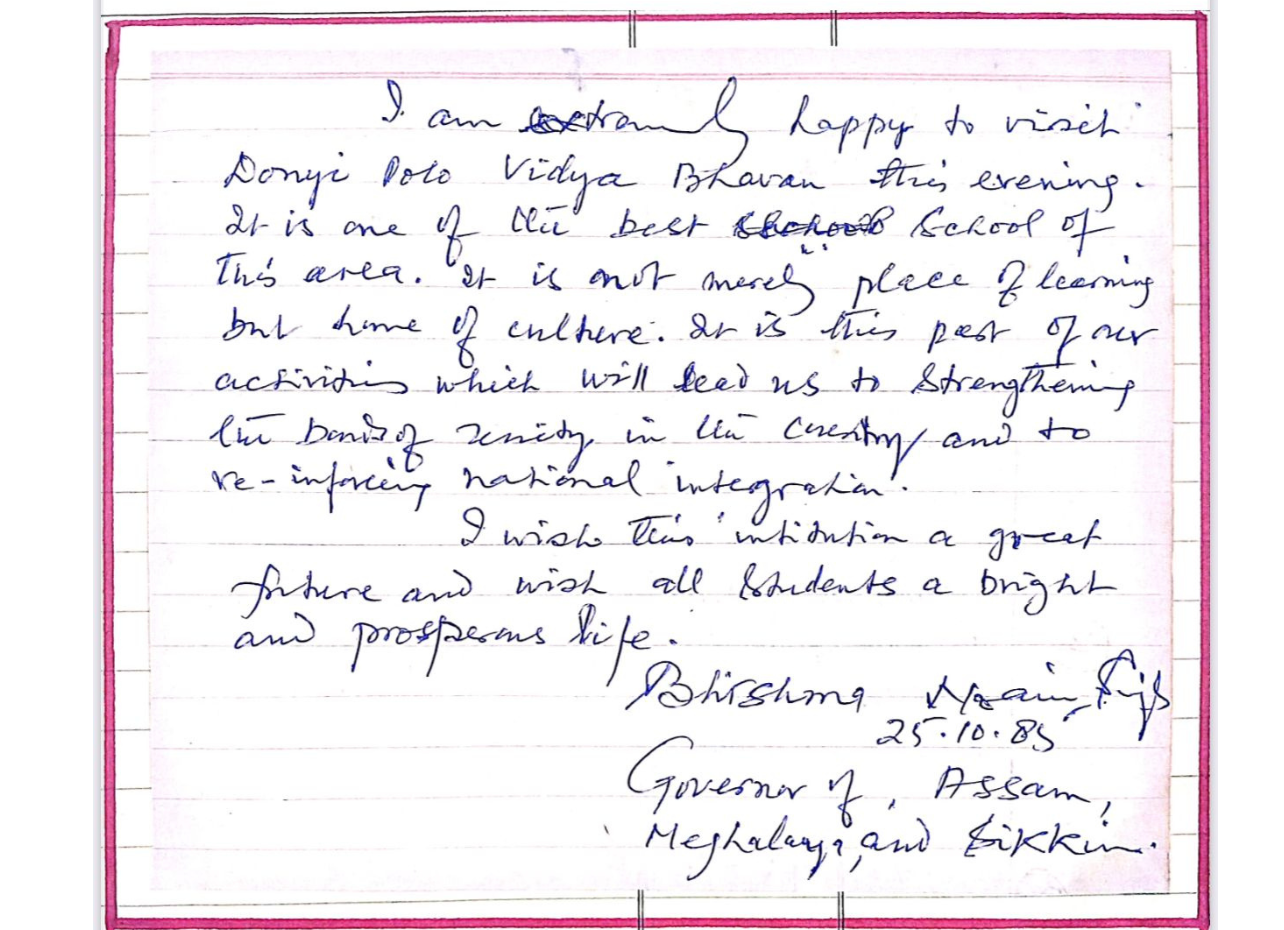 I am extremely happy to visit
Donyi Polo Vidya Bhavan this evening.
It is one of the best School of
this area. It is not merely place of learning
but home of culture. It is this part of our
activities which will lead us to strengthening
the bonds of unity in the country and to
re-inforcing national integration.
I wish this intitution a great
future and wish all students a bright
and prosperous life.
Bhishma Narain Singh
25.10.85
Governor of, Assam,
Meghalaya, and Sikkim.